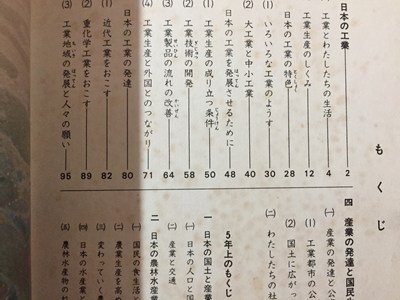 もくじ
日本の工業
一 工業とわたしたちの生活 2
工業生産のしくみ 4
(1) いろいろな工業のようす 12
日本の工業の特色 28
(1) 大工業と中小工業 30
(2) 40
日本の工業を発展させるために 48
(1) 工業生産の成り立つ条件 50
(2) 工業技術の開発 58
(3) 工業製品の流れの改善 64
(4) 工業生産と外国とのつながり 71
日本の工業の発達 80
(1) 近代工業をおこす 82
(2) 重化学工業をおこす 89
(3) 工業地域の発展と人々の願い 95
四 産業の発達と国民
(一) 産業の発達と公
(1) 工業都市の公
(2) 国土に広がっ
(二) わたしたちの社
5年上のもくじ
一 日本の国土と産業
(一) 日本の人口と国
(二) 産業と交通
二 日本の農林水産業
(一) 国民の食生活
(二) 農業生産を高め
(三) 変わっていく農
(四) 日本の水産業と
(五) 農林水産物の